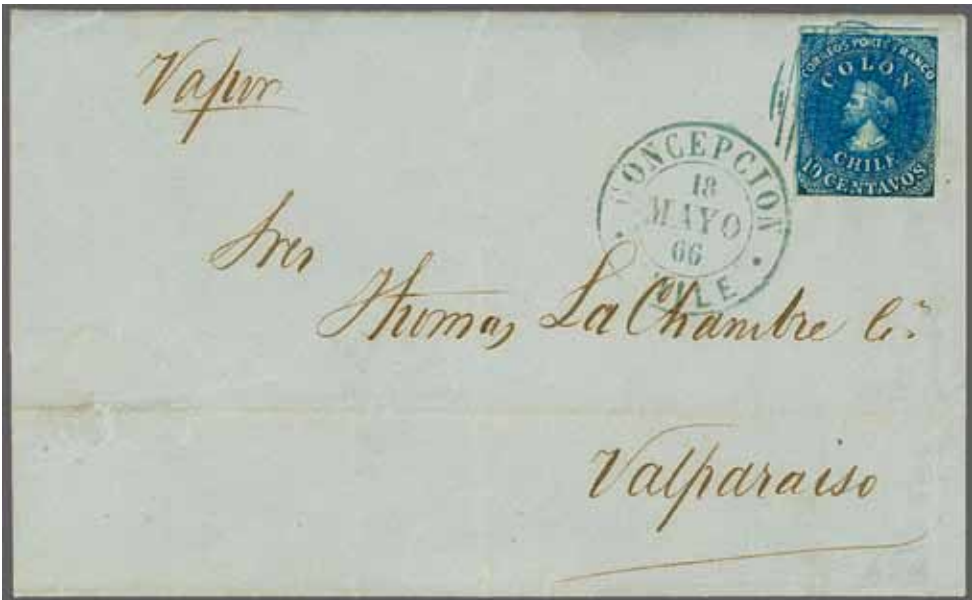 Vapor
CORREOS PORTE FRANCO
COLON
CHILE
10 CENTAVOS
CONCEPCION
18
MAYO
66
CHILE
Sres
Thomas La Chambre Cª
Valparaiso